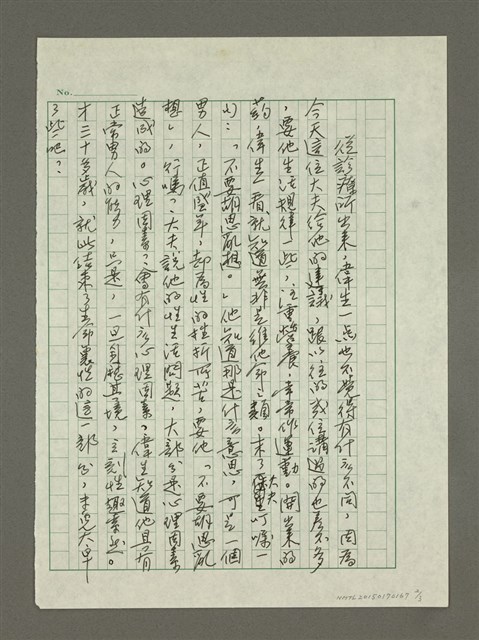 No.
從診療所出來，偉生一點也不覺得有什么不同，因為
今天這位大夫給他的建議，跟以往的幾位講過的也差不多
，要他生活規律一些，注重營養，常常作運動。開出來的
藥，偉生一看就知道無非是維他命之類。末了大夫叮嚀一
句：「不要胡思亂想。」他知道那是什么意思，可是一個
男人，正值盛年，却為性的挫折所苦，要他「不要胡思亂
想」，行嗎？大夫說他的性生活問題，大部分是心理因素
造成的。心理因素？會有什么心理因素？偉生知道他具有
正常男人的能力，只是，一旦身歷其境，立刻性趣索然。
才三十多歲，就此結束了生命裏性的這一部分，未免太早
了些吧？